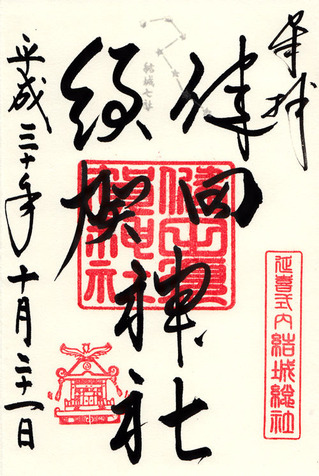 奉拝
延喜式内 結城總社
健田神社
須賀神社
結城七社
健田須
賀神社
平成三十年十月二十一日